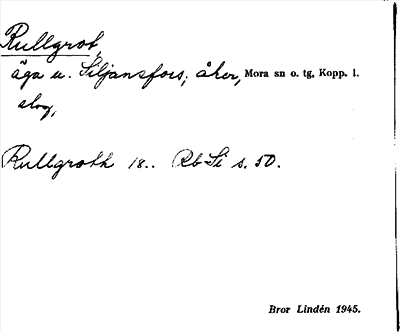 Rullgrot,
äga u. Siljansfors; åker, Mora sn o. tg, Kopp. l.
skog,
Rullgroth 18.. Rb Si s. 50.
Bror Lindén 1945.